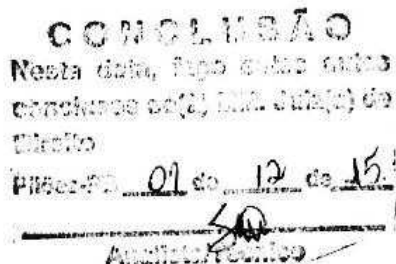 CONCLUSÃO
Nesta data, faço estes autos
conclusos ao(à) MM. Juiz(a) de
Direito
01 de 12 de 15.
Analista/Técnico